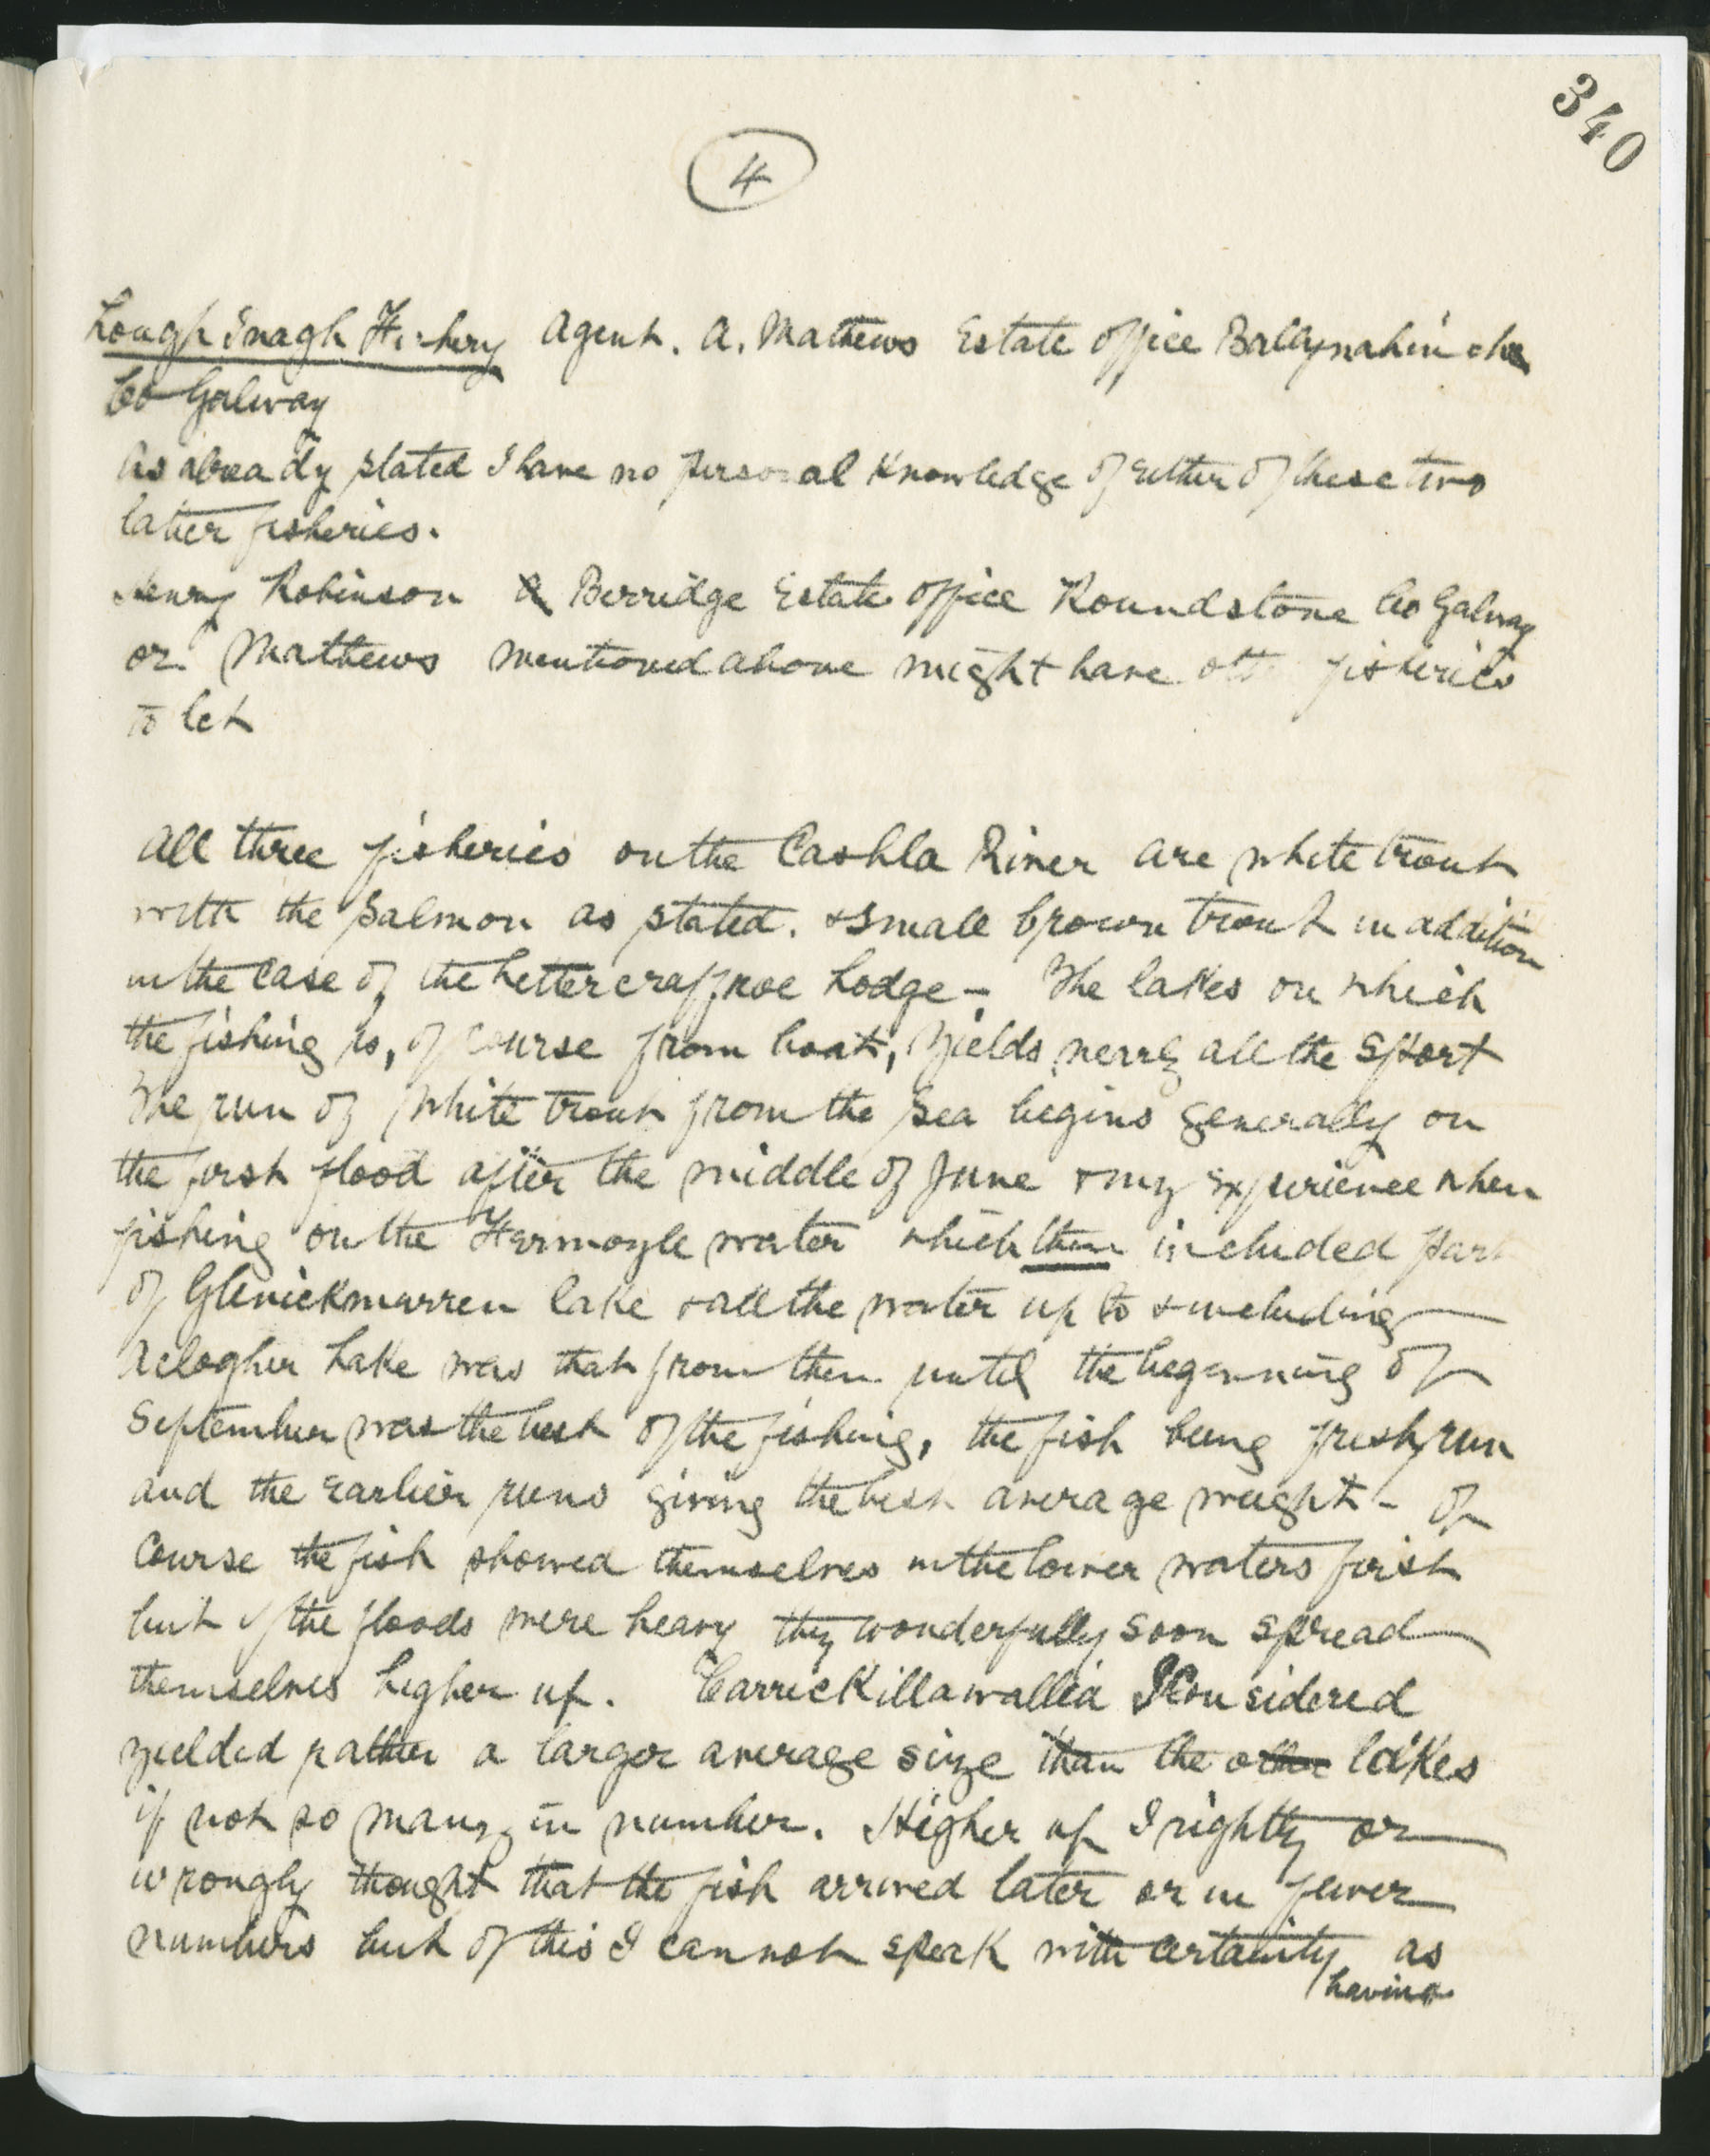 340
4
Lough Inagh Fishery Agent. A. Mathews Estate office Ballynahinche
Co Galway
As already stated I have no personal knowledge of either of these two
latter fisheries.
Henry Robinson Berridge Estate office Roundstone Co Galway
or Mathews mentioned above might have fisheries
to let
All three fisheries on the Cashla River are white trout
with the Salmon as stated. & small brown trout in addition
in the case of the Lettercraffroe Lodge - The lakes on which
the fishing is, of course from boats, yields nearly all the sport
The run of white trout from the sea begins generally on
the first flood after the middle of June & my experience when
fishing on the Fermoyle water which then included part
of Glenickmurren lake & all the water up to & including
Aclogher Lake was that from then until the beginning of
September was the best of the fishing, the fish being fresh run
and the earlier runs giving the best average weight - of
course the fish showed themselves in the lower waters first
but if the floods were heavy they wonderfully soon spread
themselves higher up. Carrickillawallia I considered
yielded rather a larger average size than the other lakes
if not so many in number. Higher up I rightly or
wrongly thought that the fish arrived later or in fewer
numbers but of this I cannot speak with certainty as
having